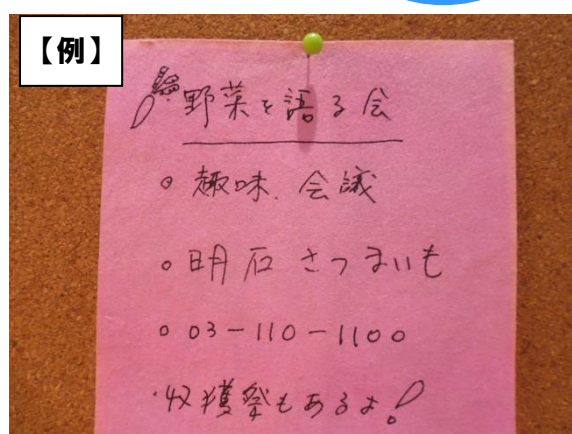 【例】
野菜を語る会
。趣味、会議
。明石さつまいも
。03-110-1100
・収獲祭もあるよ!